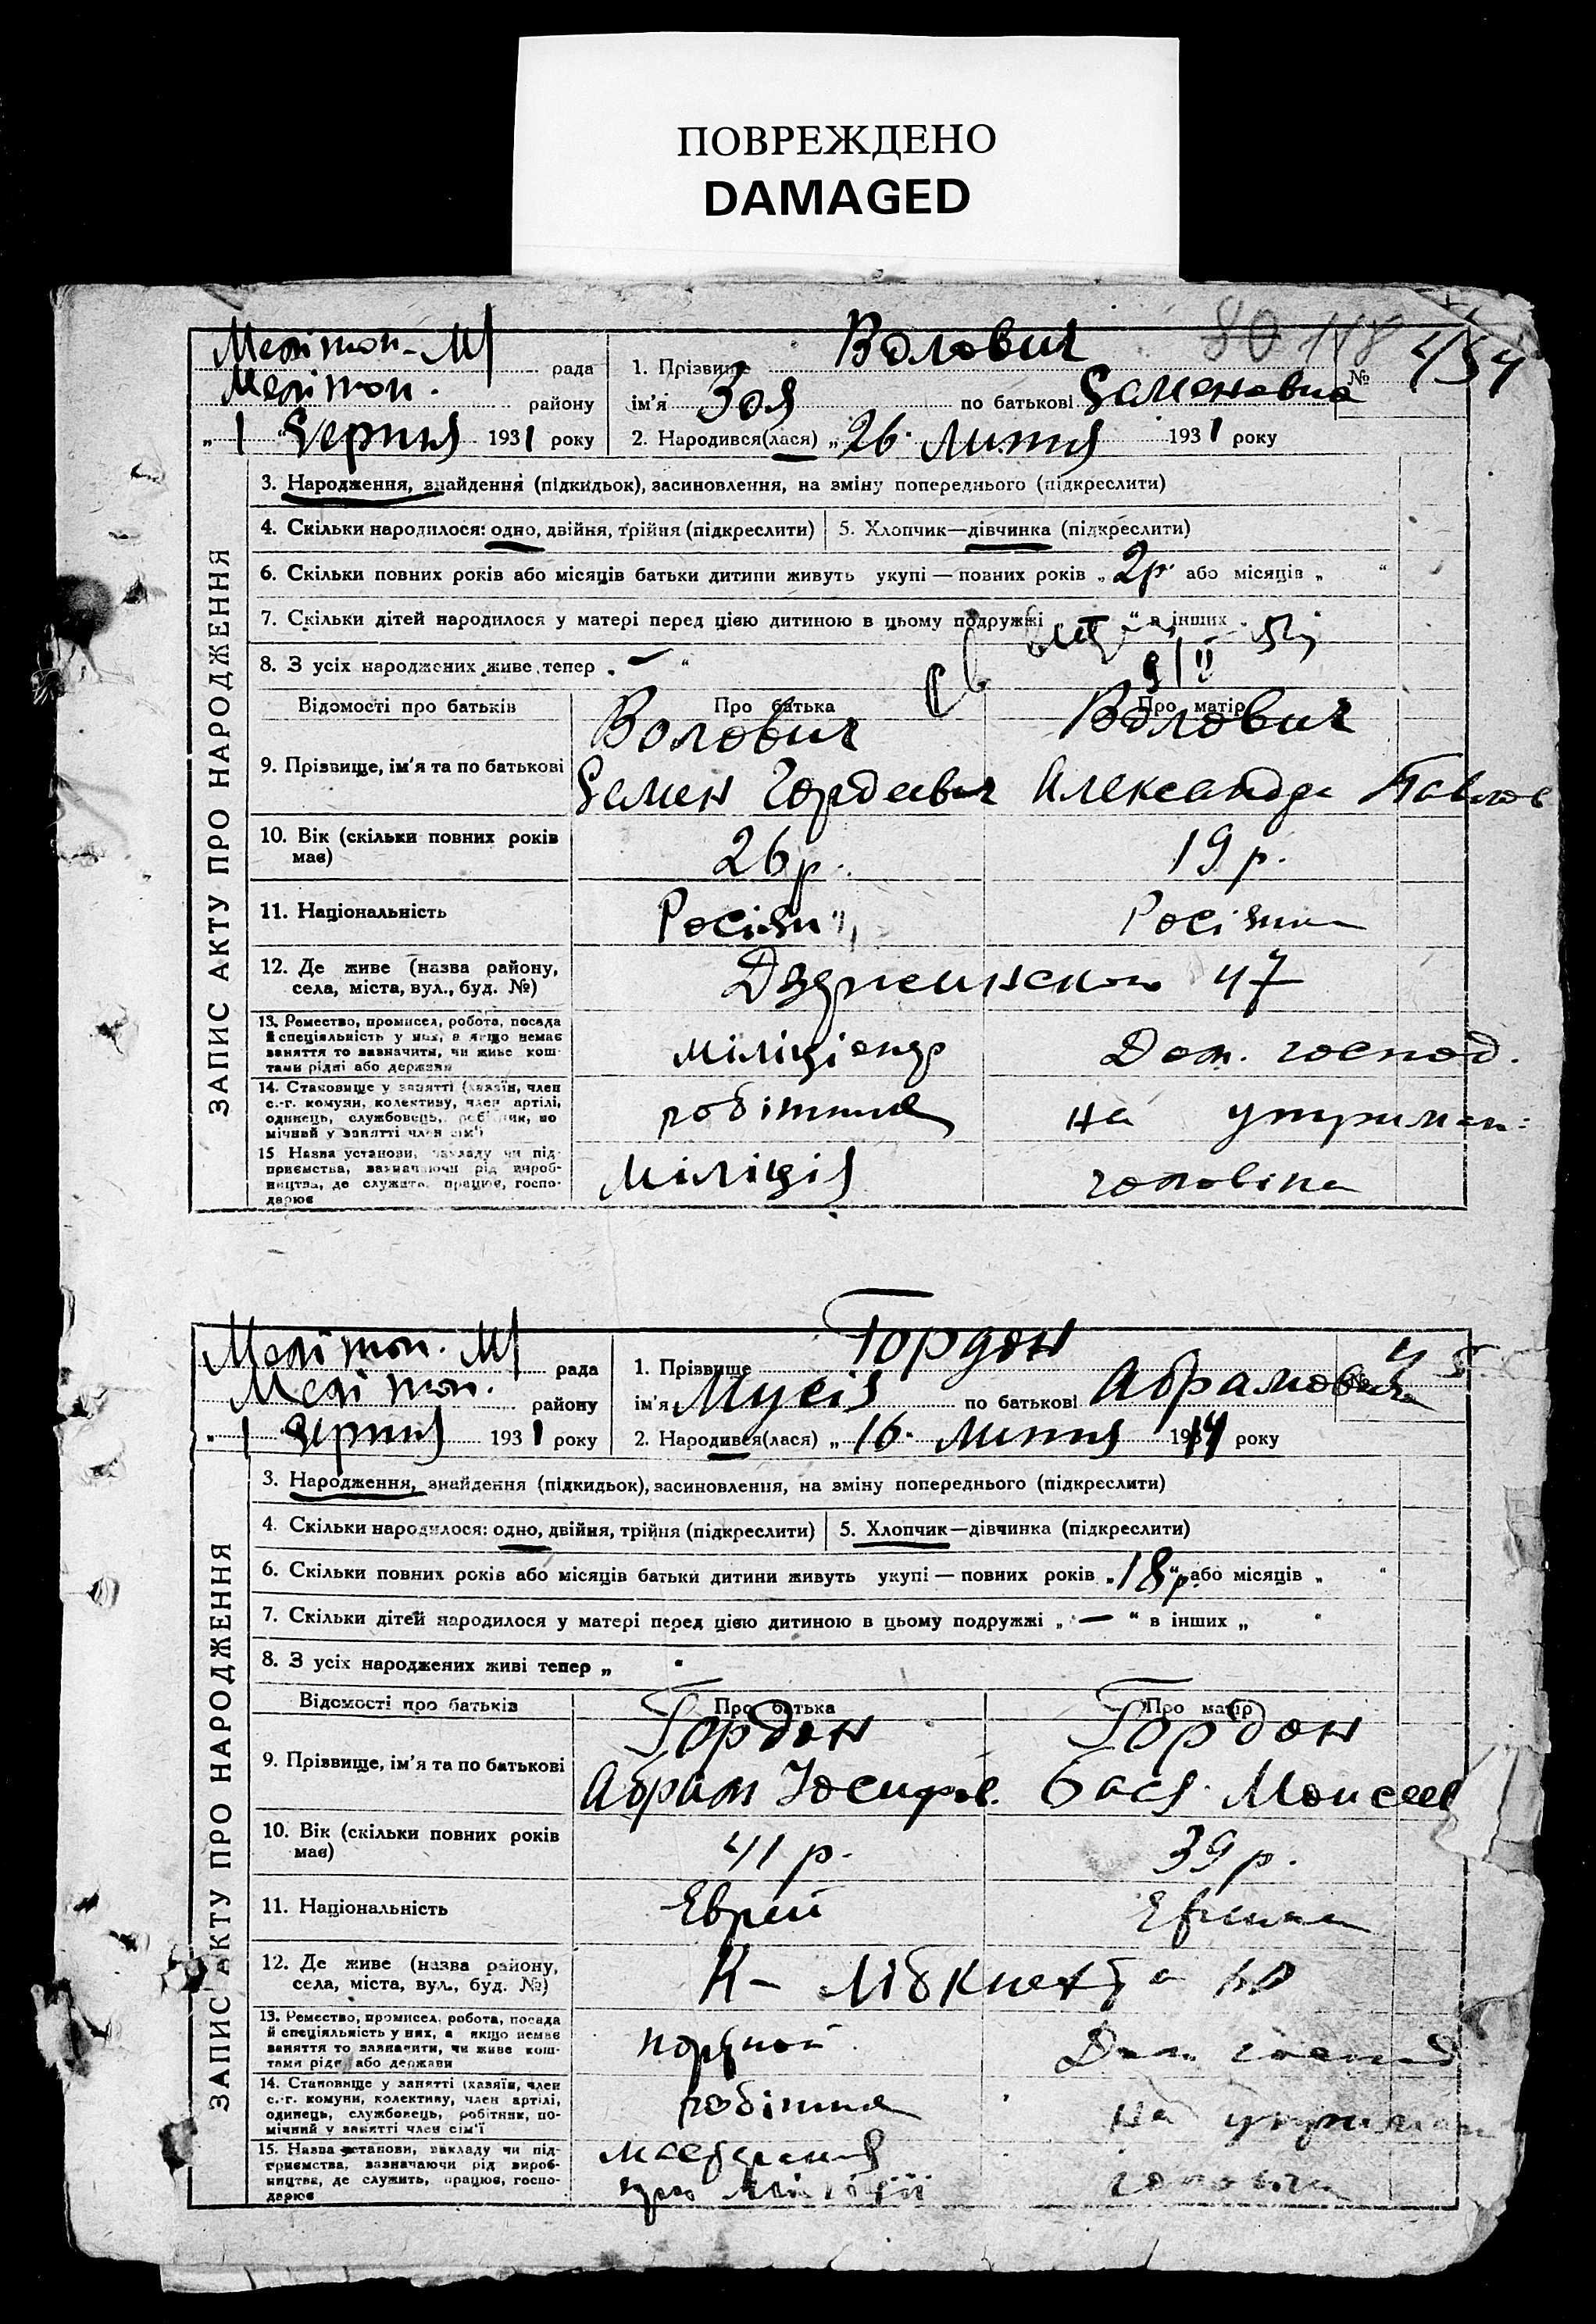 ПОВРЕЖДЕНО
DAMAGED
ЗАПИС АКТУ ПРО НАРОДЖЕННЯ
Мелітоп. М/ рада
Мелітоп. району
„ 1 " Серпня 1931 року
80 148
№ 454
1. Прізвище Волович
ім'я Зоя по батькові Семеновна
2. Народився(лася) „ 26. Липня 1931 року
3. Народження, знайдення (підкидьок), засиновлення, на зміну попереднього (підкреслити)
4. Скільки народилося: одно, двійня, трійня (підкреслити) 5. Хлопчик—дівчинка (підкреслити)
6. Скільки повних років або місяців батьки дитини живуть укупі — повних років „ 2р. або місяців „ "
7. Скільки дітей народилося у матері перед цією дитиною в цьому подружжі " в інших
8. З усіх народжених живе тепер „ — "
Відомості про батьків Про батька Про матір
9. Прізвище, ім'я та по батькові Волович Волович
Семен Гордеевич Александра Павлов
10. Вік (скільки повних років має) 26 р. 19 р.
11. Національність Росіян Росіянка
12. Де живе (назва району, села, міста, вул., буд. №) Дзержинского 47
13. Ремество, промисел, робота, посада й спеціяльність у них, а якщо немає заняття то зазначити, чи живе коштами рідні або держави міліціонер Дом. господ.
14. Становище у занятті (хазяїн, член с.-г. комуни, колективу, член артілі, одинець, службовець, робітник, помічний у занятті член сім'ї) робітник на утриман.
15 Назва установи, закладу чи підприємства, зазначаючи рід виробництва, де служить, працює, господарює Міліція чоловіка
ЗАПИС АКТУ ПРО НАРОДЖЕННЯ
Мелітоп. М/ рада
Мелітоп. району
„ 1 Серпня 1931 року
1. Прізвище Гордон
ім'я Мусій по батькові Абрамович
2. Народився(лася) „ 16. Липня 1914 року
3. Народження, знайдення (підкидьок), засиновлення, на зміну попереднього (підкреслити)
4. Скільки народилося: одно, двійня, трійня (підкреслити) 5. Хлопчик—дівчинка (підкреслити)
6. Скільки повних років або місяців батьки дитини живуть укупі — повних років „ 18 р. або місяців „ "
7. Скільки дітей народилося у матері перед цією дитиною в цьому подружжі „ — " в інших „ "
8. З усіх народжених живі тепер „ "
Відомості про батьків Про батька Про матір
9. Прізвище, ім'я та по батькові Гордон Гордон
Абрам Іосифов. Бася Моисеев
10. Вік (скільки повних років має) 41 р. 39 р.
11. Національність Еврей Еврейка
12. Де живе (назва району, села, міста, вул., буд. №) К- Лібкнехта
13. Ремество, промисел, робота, посада й спеціяльність у них, а якщо немає заняття то зазначити, чи живе коштами рідні або держави портной Дом. господ.
14. Становище у занятті (хазяїн, член с.-г. комуни, колективу, член артілі, одинець, службовець, робітник, помічний у занятті член сім'ї робітник на утриман
15. Назва установи, закладу чи підприємства, зазначаючи рід виробництва, де служить, працює, господарює майстерня
при міліції чоловіка